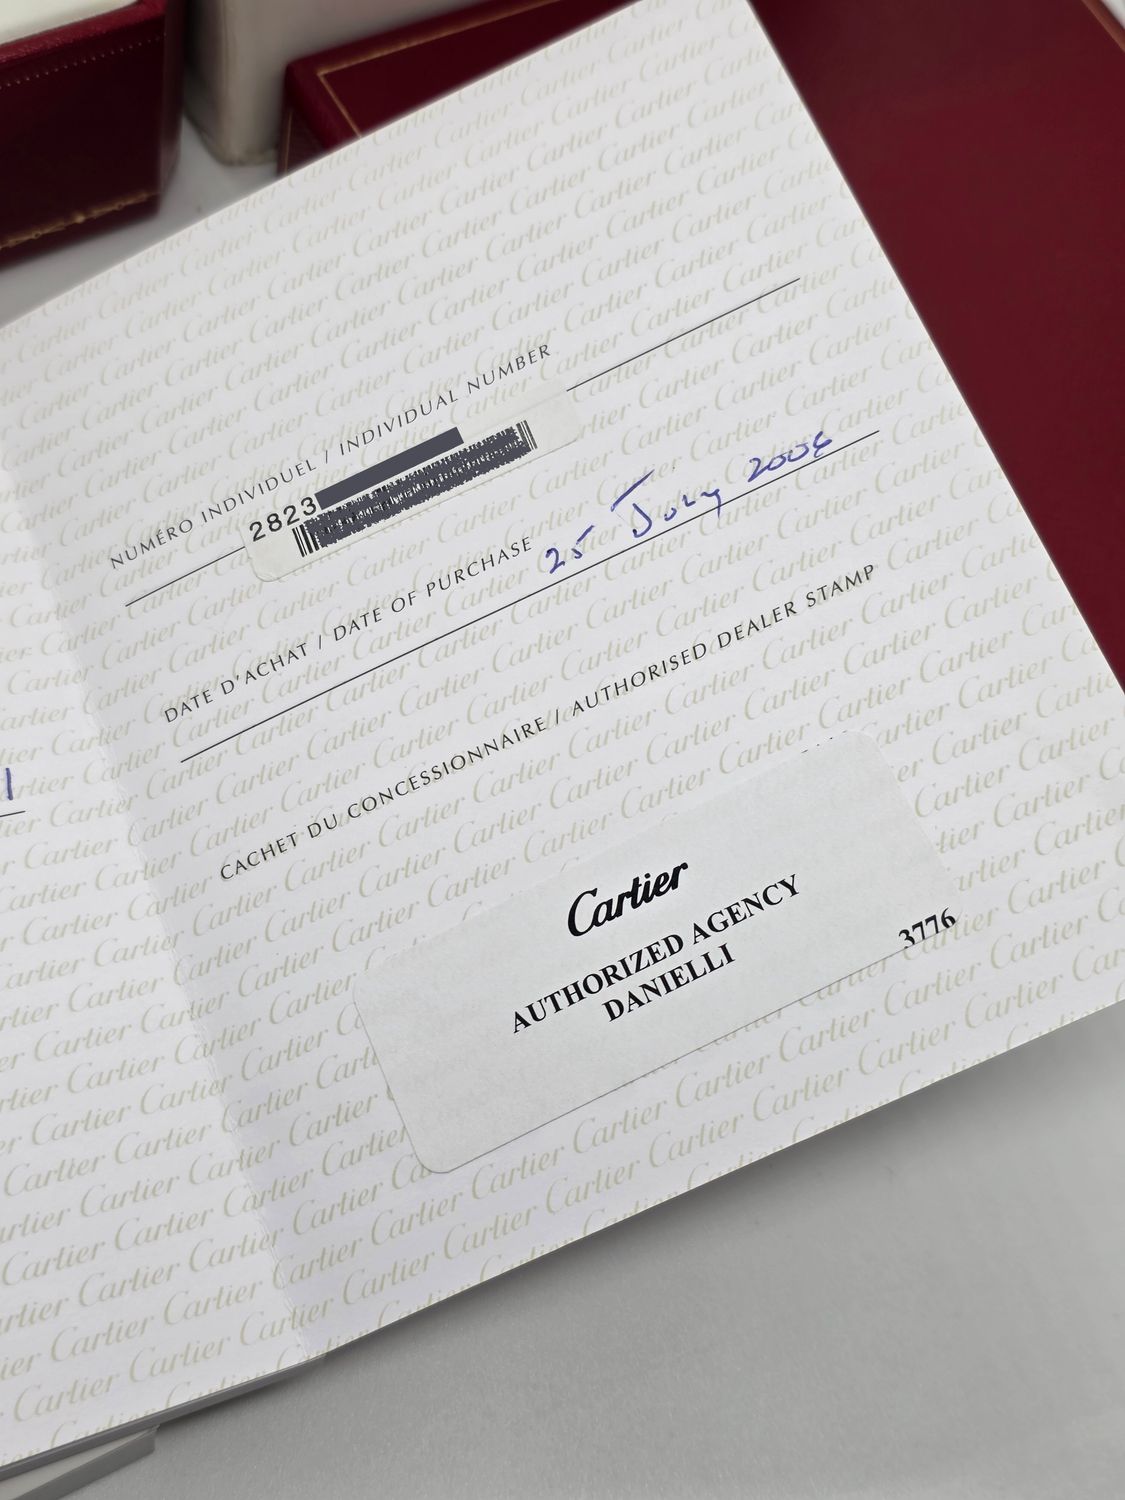 NUMÉRO INDIVIDUEL / INDIVIDUAL NUMBER
2823
DATE D'ACHAT / DATE OF PURCHASE 25 July 2006
CACHET DU CONCESSIONNAIRE / AUTHORISED DEALER STAMP
Cartier
AUTHORIZED AGENCY
DANIELLI
3776